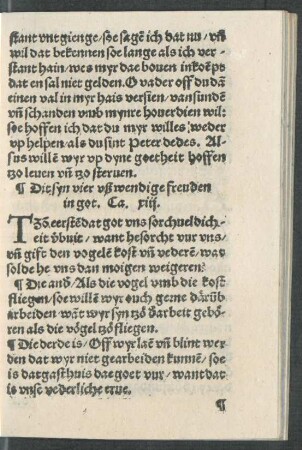 stant vnt gienge/ soe sagē ich dat nu/ vñ
wil dat bekennen soe lange als ich ver-
stant hain/ wes myr dae bouen inkoēpt
dat en sal niet gelden. O vader off du dā
einen val in myr hais versien/ van sundē
vñ schanden vmb mynre houerdien wil:
soe hoffen ich dat du myr willes weder
vp helpen/ als du sint Peter dedes. Al-
sus willē wyr vp dyne goetheit hoffen
tzo leuen vñ tzo steruen.
¶ Dit syn vier vßwendige freuden
in got. Ca. xiij.
TZō eerstē dat got vns sorchueldich-
eit v̄buit/ want he sorcht vur vns/
vñ gift den vogelē kost vñ vederē/ wat
solde he vns dan moigen weigeren?
¶ Die and̄/ Als die vogel vmb die kost
fliegen/ soe willē wyr ouch gerne dārūb
arbeiden/ wāt wyr syn tzo d̄ arbeit gebō-
ren als die vögel tzo fliegen.
¶ Die derde is/ Off wyr laē vñ blint wer
den dat wyr niet gearbeiden kunnē/ soe
is dat gasthuis dae goet vur/ want dat
is vnse vederliche true.
¶